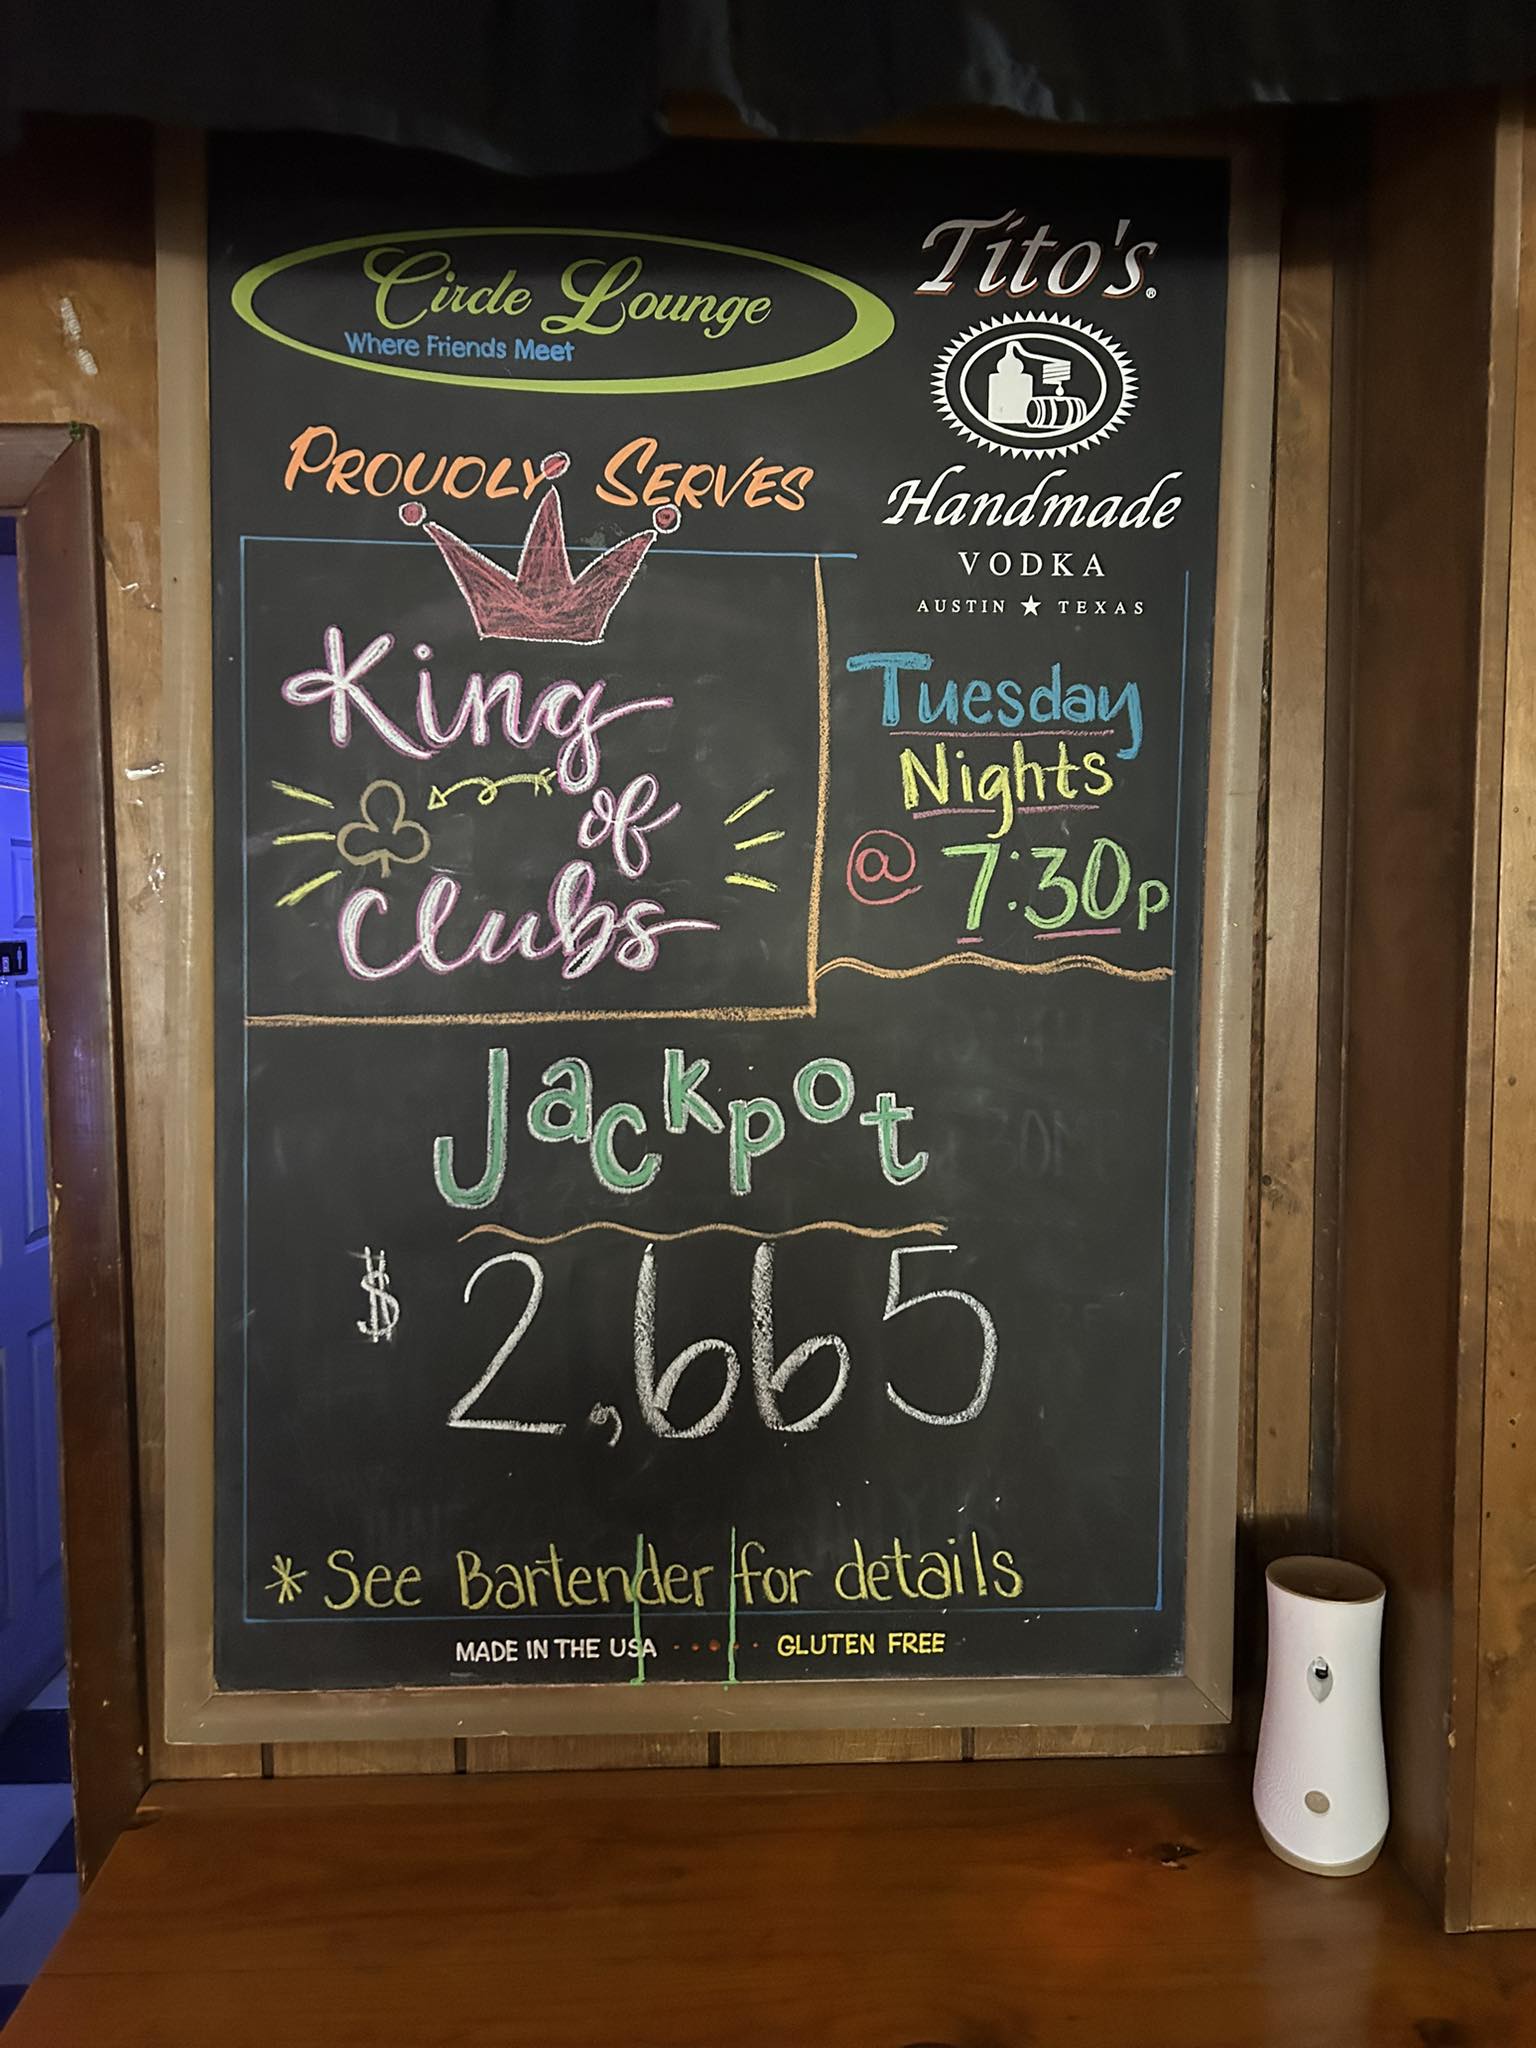 Circle Lounge
Where Friends Meet
Tito's®
Handmade
VODKA
AUSTIN ★ TEXAS
PROUDLY SERVES
King
of
Clubs
Tuesday
Nights
@ 7:30p
Jackpot
$ 2,665
* See Bartender for details
MADE IN THE USA ..... GLUTEN FREE